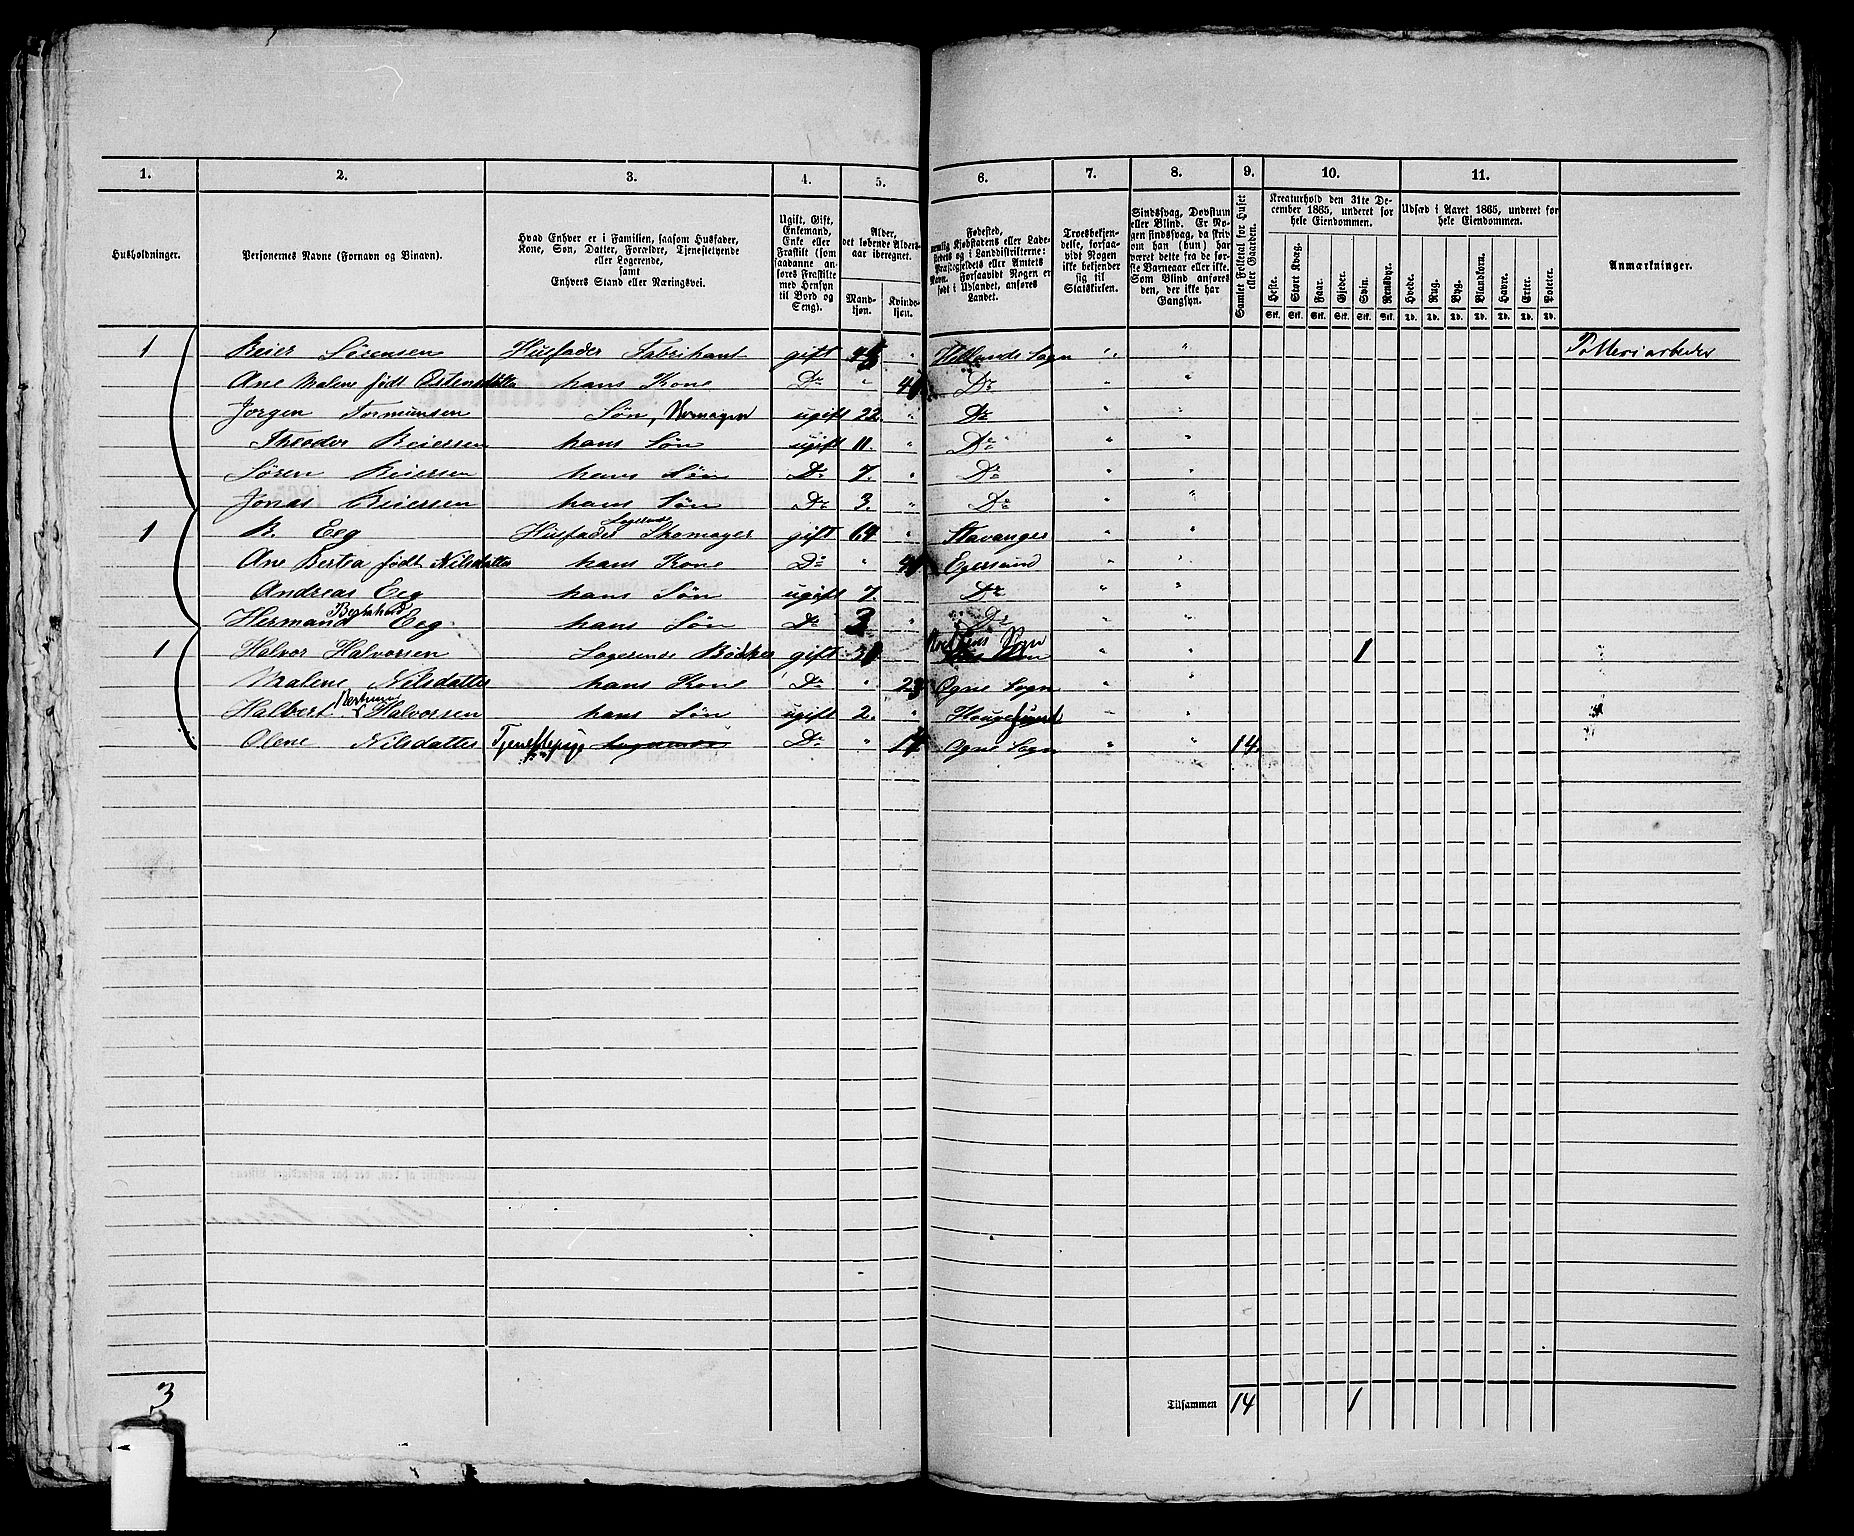 1. 2. 3. 4. 5. 6. 7. 8. 9. 10. 11.
Husholdninger.
Personernes Navne (Fornavn og Binavn).
Hvad Enhver er i Familien, saasom Husfader,
Kone, Søn, Datter, Forældre, Tjenestetyende
eller Logerende,
samt
Enhvers Stand eller Næringsvei.
Ugift, Gift,
Enkemand,
Enke eller
Fraskilt (som
saadanne an-
føres Fraskilte
med Hensyn
til Bord og
Seng).
Alder,
det løbende Alders-
aar iberegnet.
Mand-
kjøn.
Kvinde-
kjøn.
Fødested,
nemlig Kjøbstadens eller Lade-
stedets og i Landdistrikterne:
Præstegjeldets eller Amtets
Navn. Forsaavidt Nogen er
født i Udlandet, anføres
Landet.
Troesbekjen-
delse, forsaa-
vidt Nogen
ikke bekjender
sig til
Statskirken.
Sindssvag, Døvstum
eller Blind. Er No-
gen sindssvag, da skriv
om han (hun) har
været dette fra de før-
ste Barneaar eller ikke.
Som Blind anføres
den, der ikke har
Gangsyn.
Samlet Folketal for Huset
eller Gaarden.
Kreaturhold den 31te De-
cember 1865, underet for
hele Eiendommen.
Heste. Stort Kvæg. Faar. Gjeder. Svin. Rensdyr.
Stk. Stk. Stk. Stk. Stk. Stk.
Udsæd i Aaret 1865, underet for
hele Eiendommen.
Hvede. Rug. Byg. Blandkorn. Havre. Erter. Poteter.
Td. Td. Td. Td. Td. Td. Td.
Anmærkninger.
1 Beier Sörensen Husfader Fabrikant gift " Hellands Sogn " " Potteriarbeder
Ane Malene født Ostensdatter hans Kone Do " Do " "
Jørgen Tormunsen Søn, ugift 22. " Do " "
Theodor Beiersen hans Søn ugift 11. " Do " "
Sören Beiersen hans Søn Do 7. " Do " "
Jonas Beiersen hans Søn Do 3. " Do " "
Logerende
1 B. Eeg Husfader Skomager gift 64 " Stavanger " "
Ane Bertea født Nilsdatter hans Kone Do " Egersund " "
Andreas Eeg hans Søn ugift 7. " Do " "
Hermand Eeg hans Søn Do 3 " Do " "
1 Halvor Halvorsen Logerende Bödker gift Sogn " " 1
Malene Nilsdatter hans Kone Do " 23 Ogne Sogn " "
Halbert Halvorsen hans Søn ugift 2. " Hougesund " "
Olene Nilsdatter Tjenestepige Do " 17 Ogne Sogn " " 14
3
Tilsammen 14 1